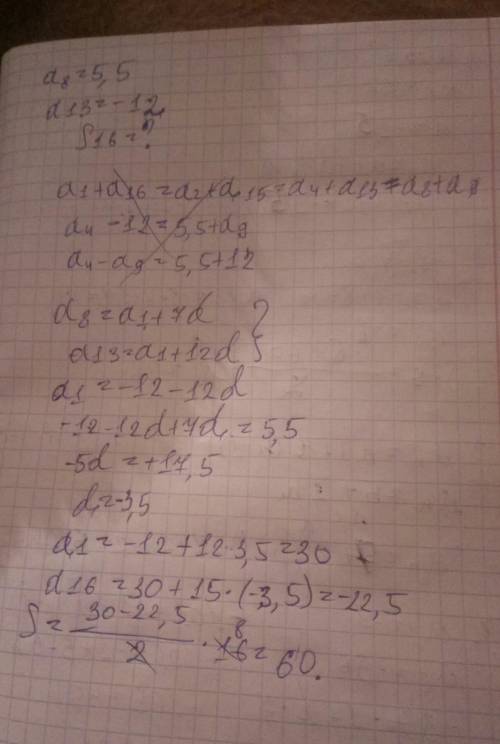 a₈=5,5
a13=-12
S16=?
a1+a16=a2+a15=a4+a13=a8+a9
a4-12=5,5+a9
a4-a9=5,5+12
a8=a1+7d }
a13=a1+12d
a1=-12-12d
-12-12d+7d=5,5
-5d=+17,5
d=-3,5
a1=-12+12·3,5=30
a16=30+15·(-3,5)=-22,5
S=(30-22,5)/2·16 8=60.